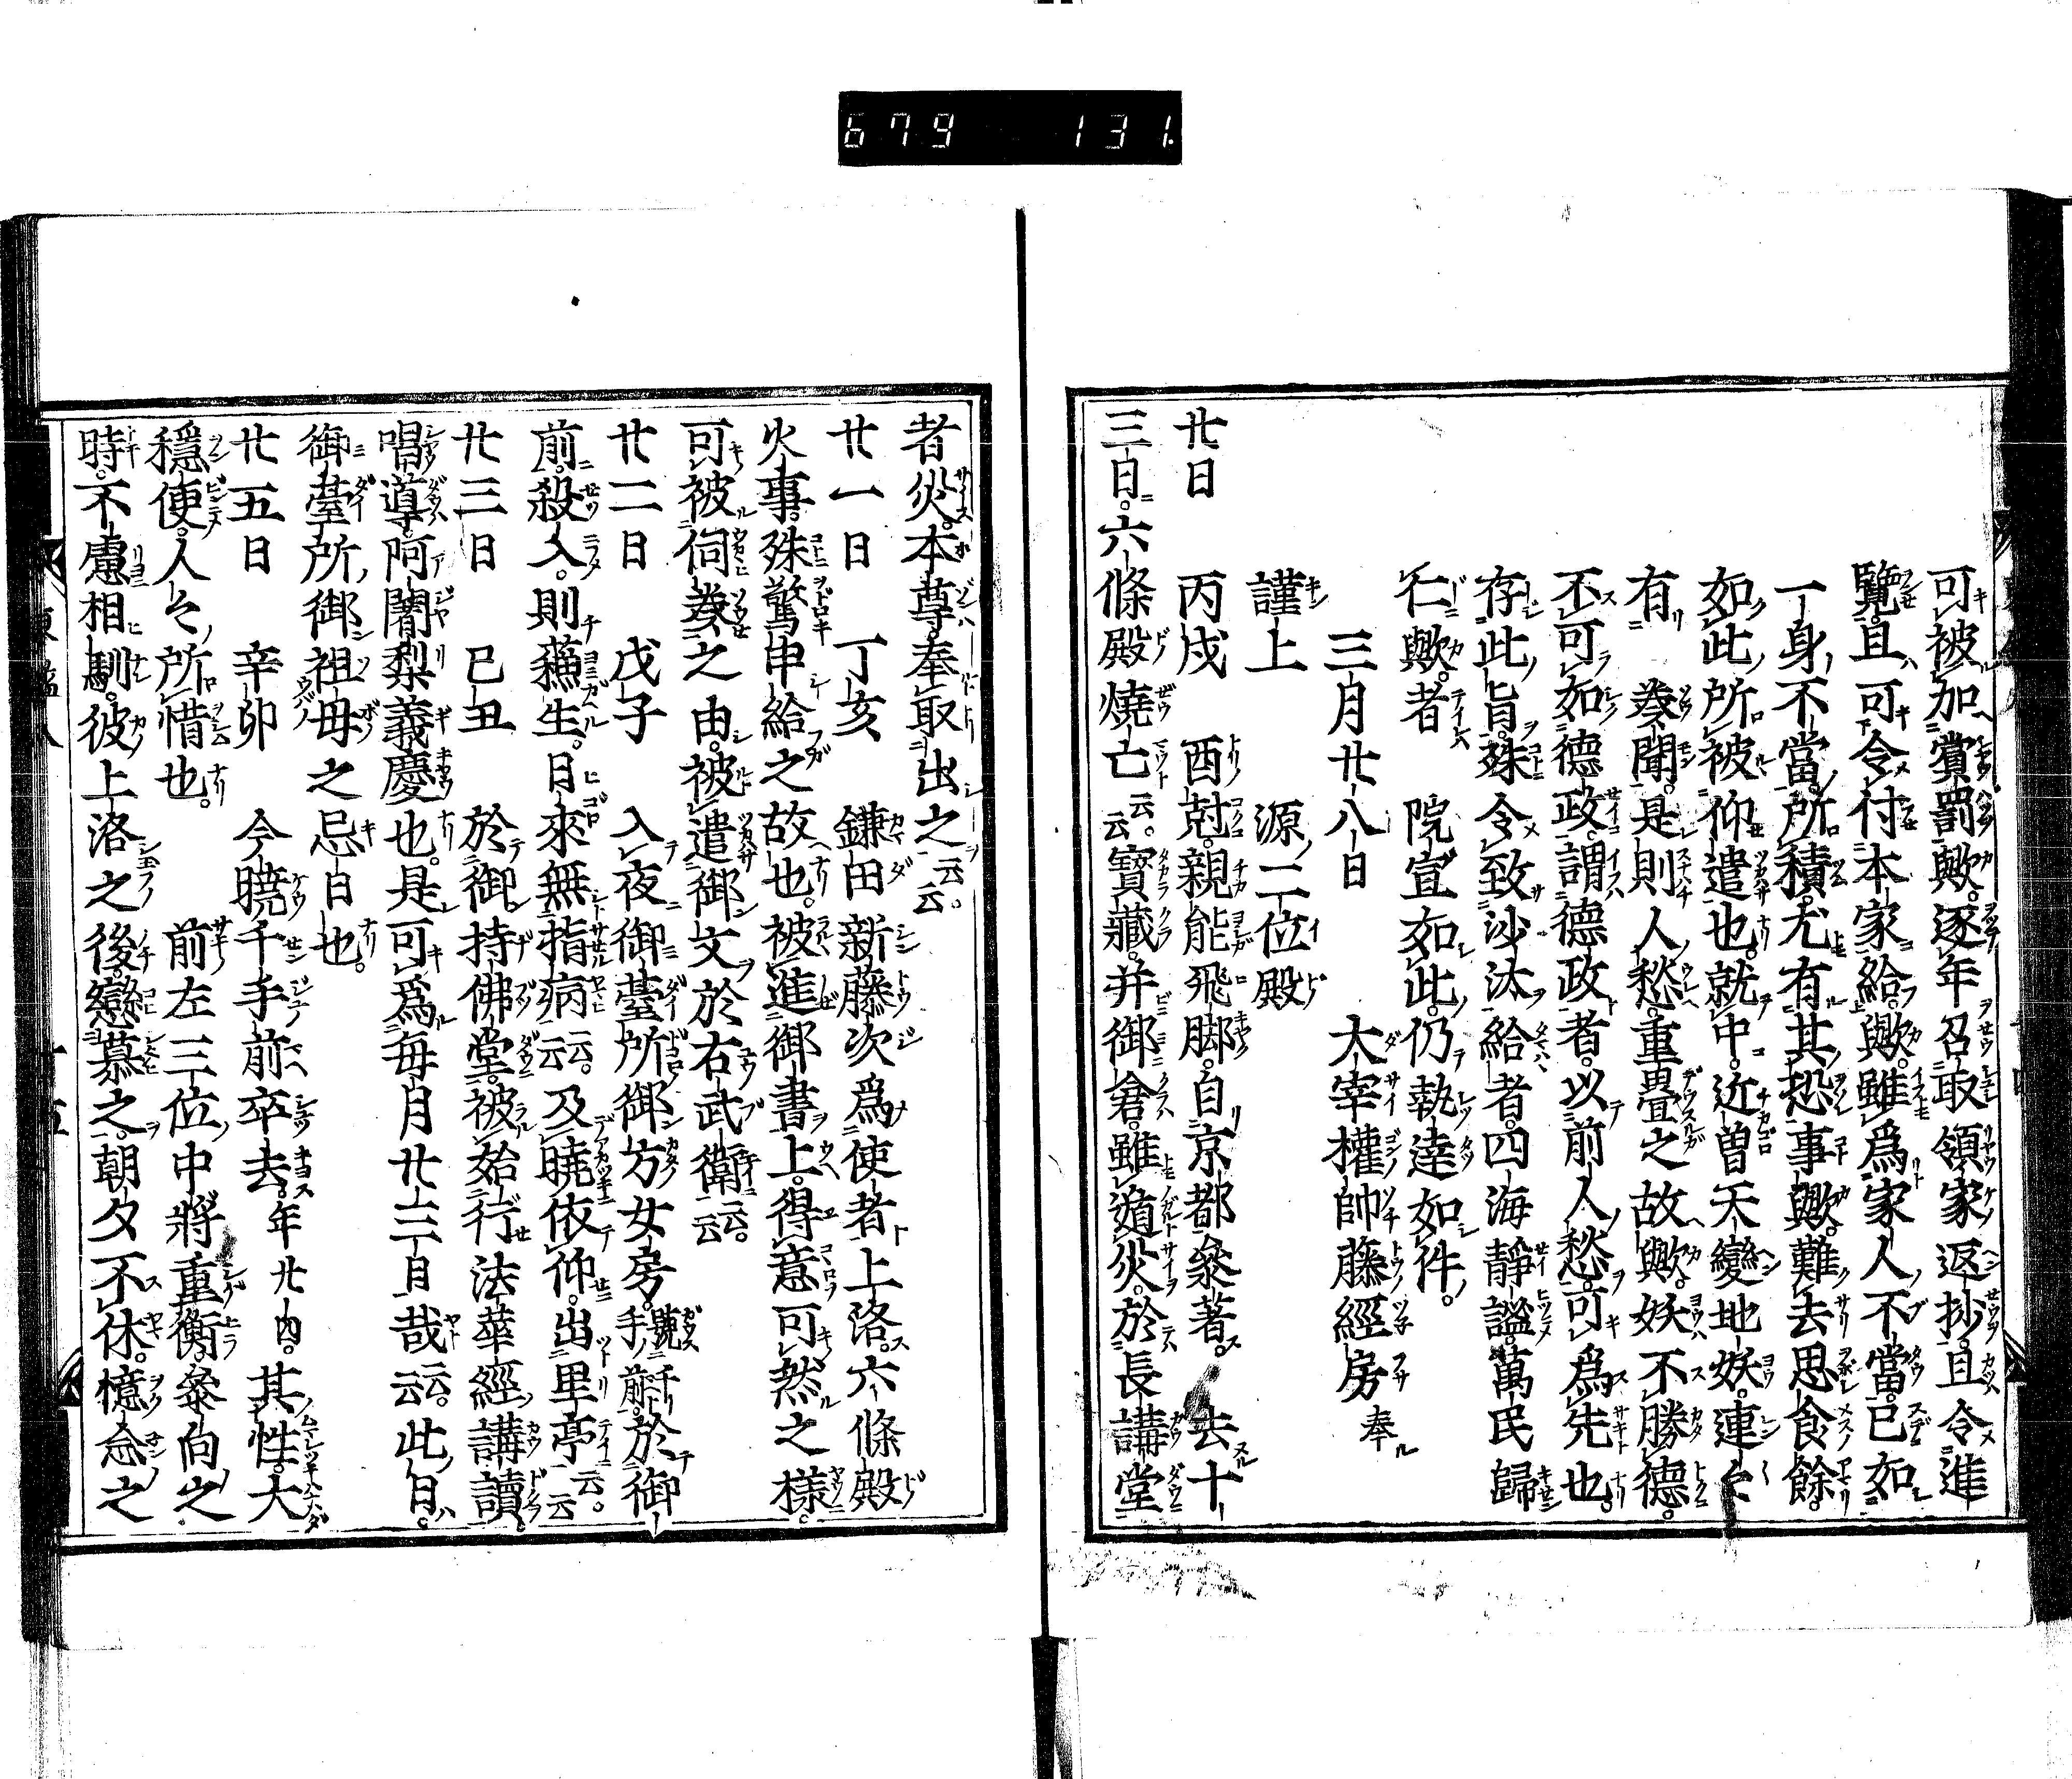 679 131.
可被加賞罰歟。逐年召取領家返抄。且令進
覽。且可令付本家給歟。雖爲家人不當。已如
一身不當。所積尤有其恐事歟。難去思食餘。
如此所被仰遣也。就中。近曽天變地妖。連々
有 奏聞。是則人愁。重疊之故歟。妖不勝德。
不可如德政。謂德政者。以前人愁。可爲先也。
存此旨。殊令致沙汰給者。四海靜謐。萬民歸
仁歟。者 院宣如此。仍執達如件。
三月廿八日 大宰權帥藤經房奉
謹上 源二位殿
廿日 丙戌 酉尅。親能飛脚。自京都參著。去十
三日。六條殿燒亡云云。寶藏。并御倉。雖遁災。於長講堂
者災。本尊。奉取出之云云。
廿一日 丁亥 鎌田新藤次爲使者上洛。六條殿
火事。殊驚申給之故也。被進御書上。得意可然之様。
可被伺奏之由。被遣御文於右武衛云云。
廿二日 戊子 入夜御臺所御方女房。號千手前。於御
前。殺入。則蘓生。日來無指病云云。及曉依仰。出里亭云云。
廿三日 己丑 於御持佛堂。被始行法華經講讀。
唱導。阿闍梨義慶也。是可爲毎月廿三日哉云云。此日。
御臺所御祖母之忌日也。
廿五日 辛卯 今曉千手前卒去。年廿四。其性。大
穩便。人々所惜也。 前左三位中將重衡參向之
時。不慮相馴。彼上洛之後。戀慕之。朝夕不休。憶念之